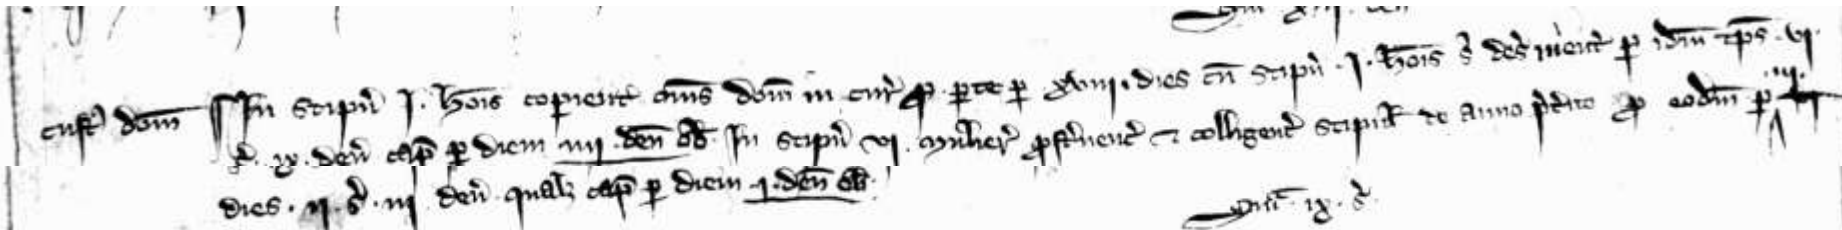 Custꝰ dom̄ ¶ In stipn̄ .j. hoīs copient̄ om̄s dom̄ in cur̄ ꝓ ꝑte ꝑ xviij. dies cū stipn̄ .j. hoīs s̄ des̄uient̄ ꝑ idm̄ tp̄s .vj.
s̄. ix. den̄ cap̄ ꝑ diem iiij .den̄ ob̄. In stipn̄ vj. mulier̄ ꝓst̄nent̄ ⁊ colligent̄ stipul̄ de anno p̄t̄ito ꝓ eodm̄ ꝑ iij.
dies .ij. s̄. iij den̄ qual̄ cap̄ ꝑ diem .j. den̄ ob̄.
Sm̄ .ix. s̄.